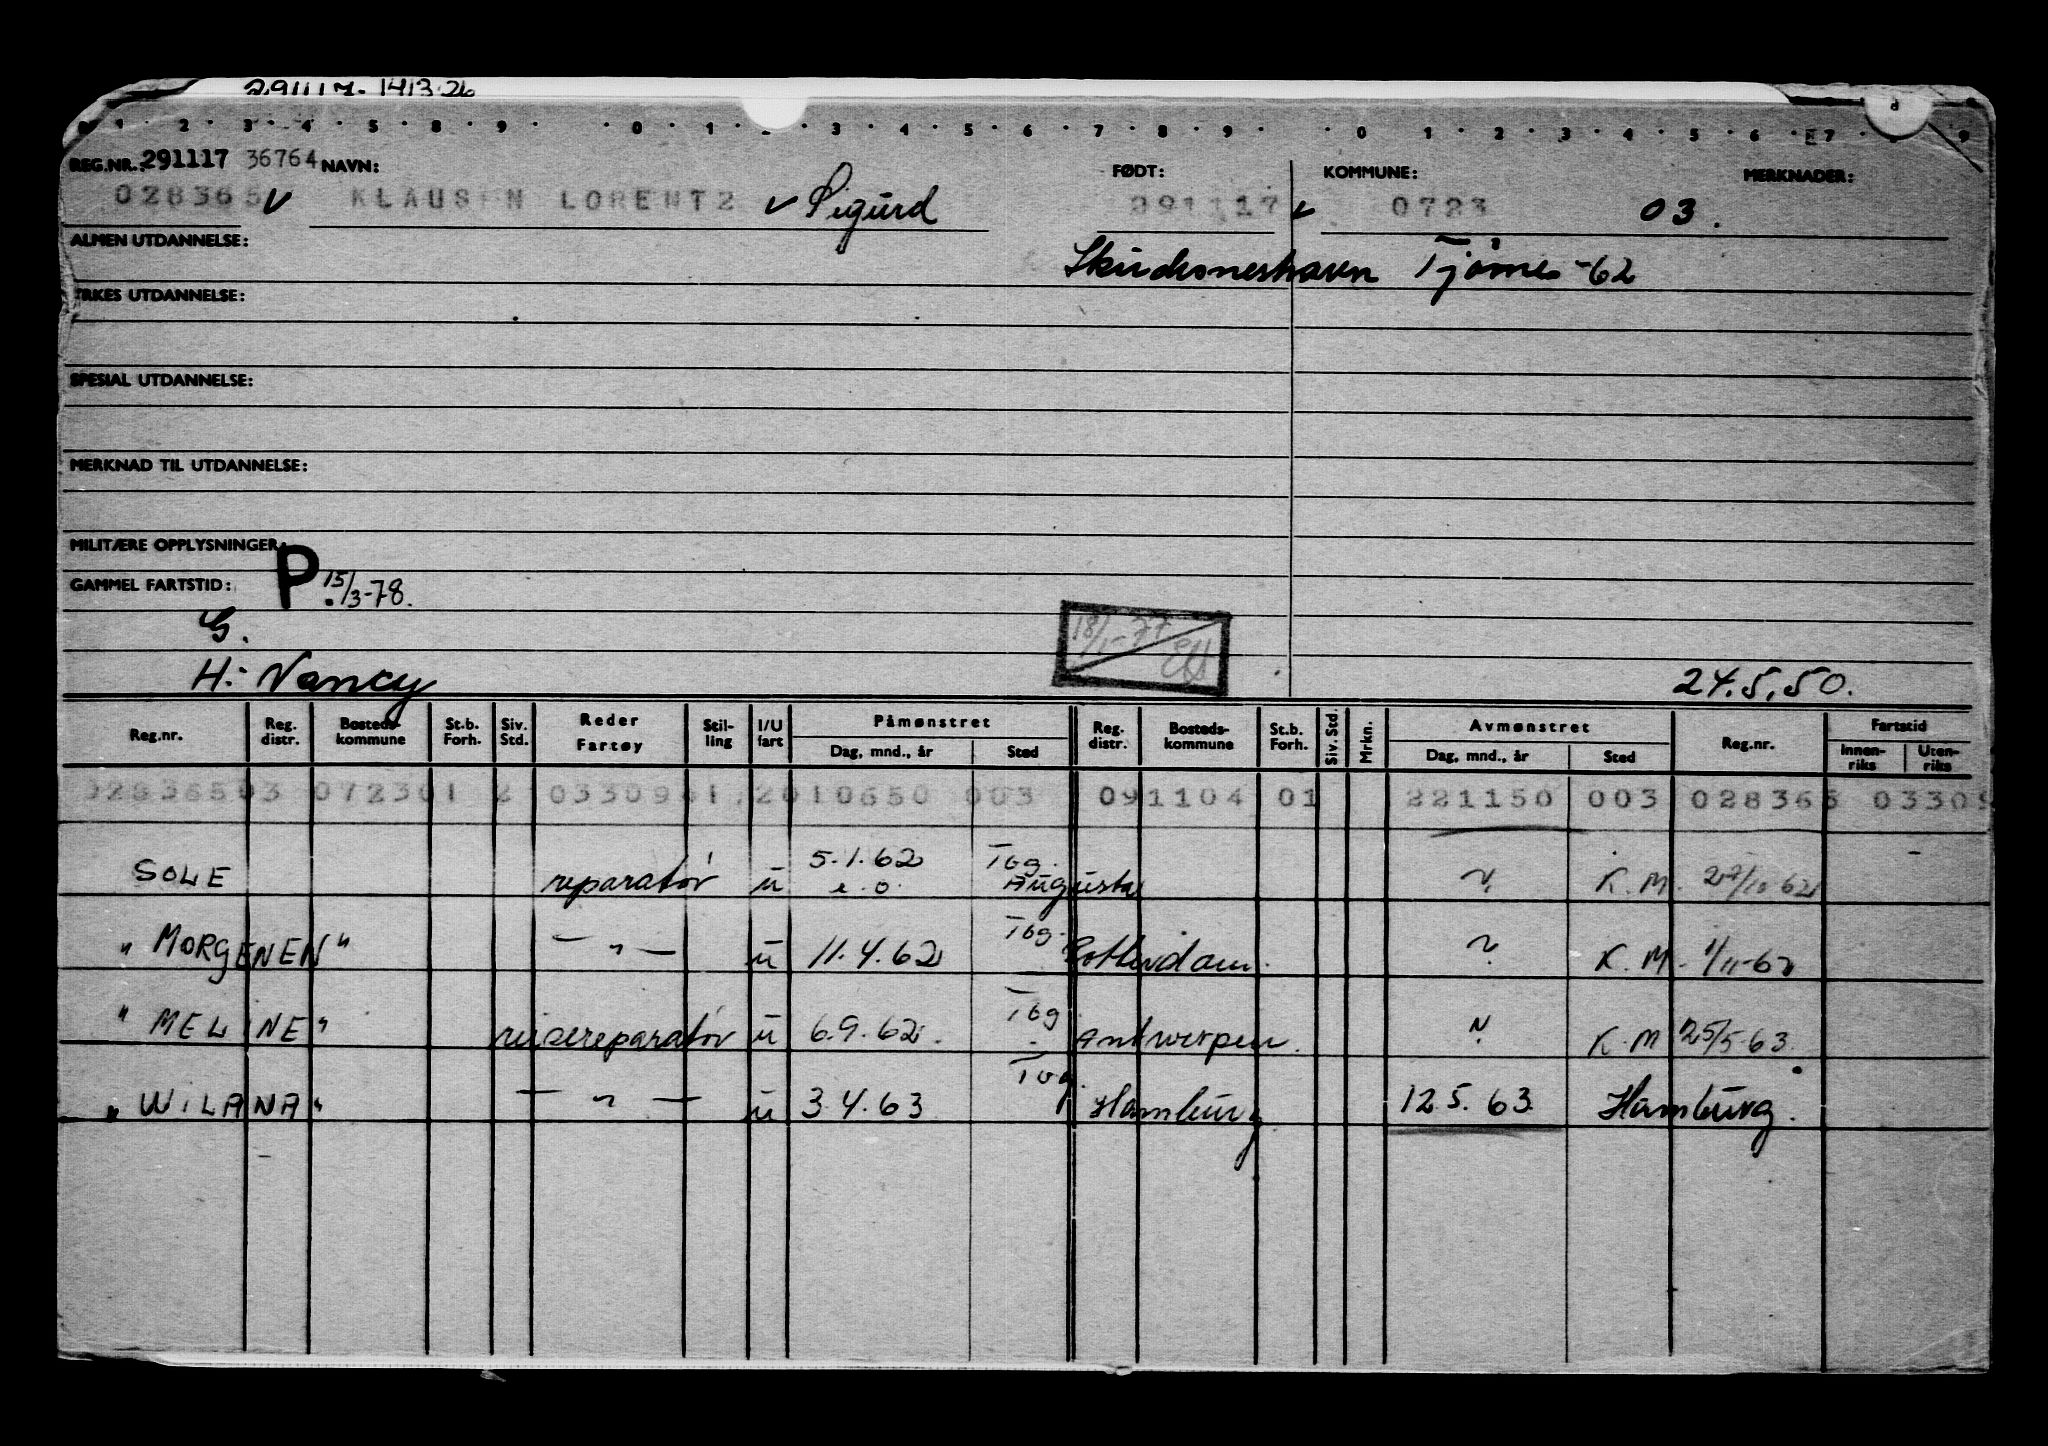 291117. 1413.26
REG.NR.: 291117 36764 NAVN: FØDT: KOMMUNE: MERKNADER:
028365 KLAUSEN LORENTZ Sigurd 291117 0723 03.
ALMEN UTDANNELSE: Skudesneshavn Tjöme -62
YRKES UTDANNELSE:
SPESIAL UTDANNELSE:
MERKNAD TIL UTDANNELSE:
MILITÆRE OPPLYSNINGER:
GAMMEL FARTSTID: P. 15/3-78.
G. 18/1-77
H: Nancy 24.5.50.
Reg.nr. Reg. distr. Bosteds-kommune St.b. Forh. Siv. Std. Reder Fartøy Stil-ling I/U fart Påmønstret Dag, mnd., år Sted Reg. distr. Bosteds-kommune St.b. Forh. Siv. Std. Mrkn. Avmønstret Dag, mnd., år Sted Reg.nr. Fartstid Innen-riks Uten-riks
02836503 072301 2 0330961.2010650 003 091104 01 221150 003 028365 03309
SOLE reparatör u 5.1.62 e.o. Tbg. Augusta ? K.M. 29/10 62
"MORGENEN" — " — u 11.4.62 Tbg. Rotterdam. ? K.M. 1/11-62
"MELINE" reisereparatör u 6.9.62. Tbg. Antwerpen. ? K.M 25/5-63.
"WILANA" — " — u 3.4.63 Tbg. Hamburg 12.5.63. Hamburg.